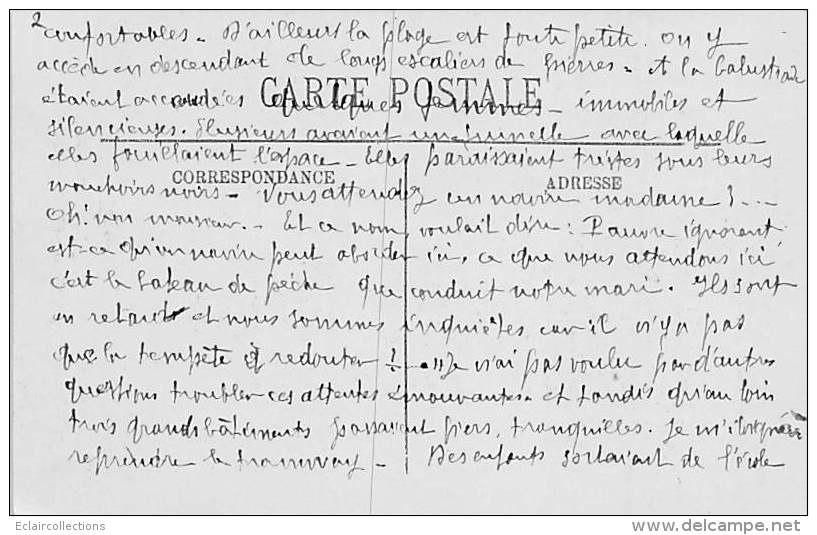 2
confortables - D'ailleurs la plage est toute petite. On y
accède en descendant de longs escaliers de pierres - et la balustrade
CARTE POSTALE
étaient accoudées quelques femmes - immobiles et
silencieuses. Plusieurs avaient une jumelle avec laquelle
elles fouillaient l'espace - Elles paraissaient tristes sous leurs
CORRESPONDANCE
ADRESSE
mouchoirs noirs - Vous attendez un navire madame ? ...
Oh! non monsieur. - Et ce non, voulait dire : Pauvre ignorant
est-ce qu'un navire peut aborder ici, ce que nous attendons ici
c'est le bateau de pêche que conduit notre mari. Ils sont
en retard et nous sommes inquiètes car il n'y a pas
que la tempête à redouter ! .. "Je n'ai pas voulu par d'autres
questions troubler ces attentes émouvantes - et tandis qu'au loin
trois grands bâtiments passaient fiers, tranquilles. Je m'éloignais
reprendre le tramway - Des enfants sortaient de l'école
Eclaircollections
www.delcampe.net